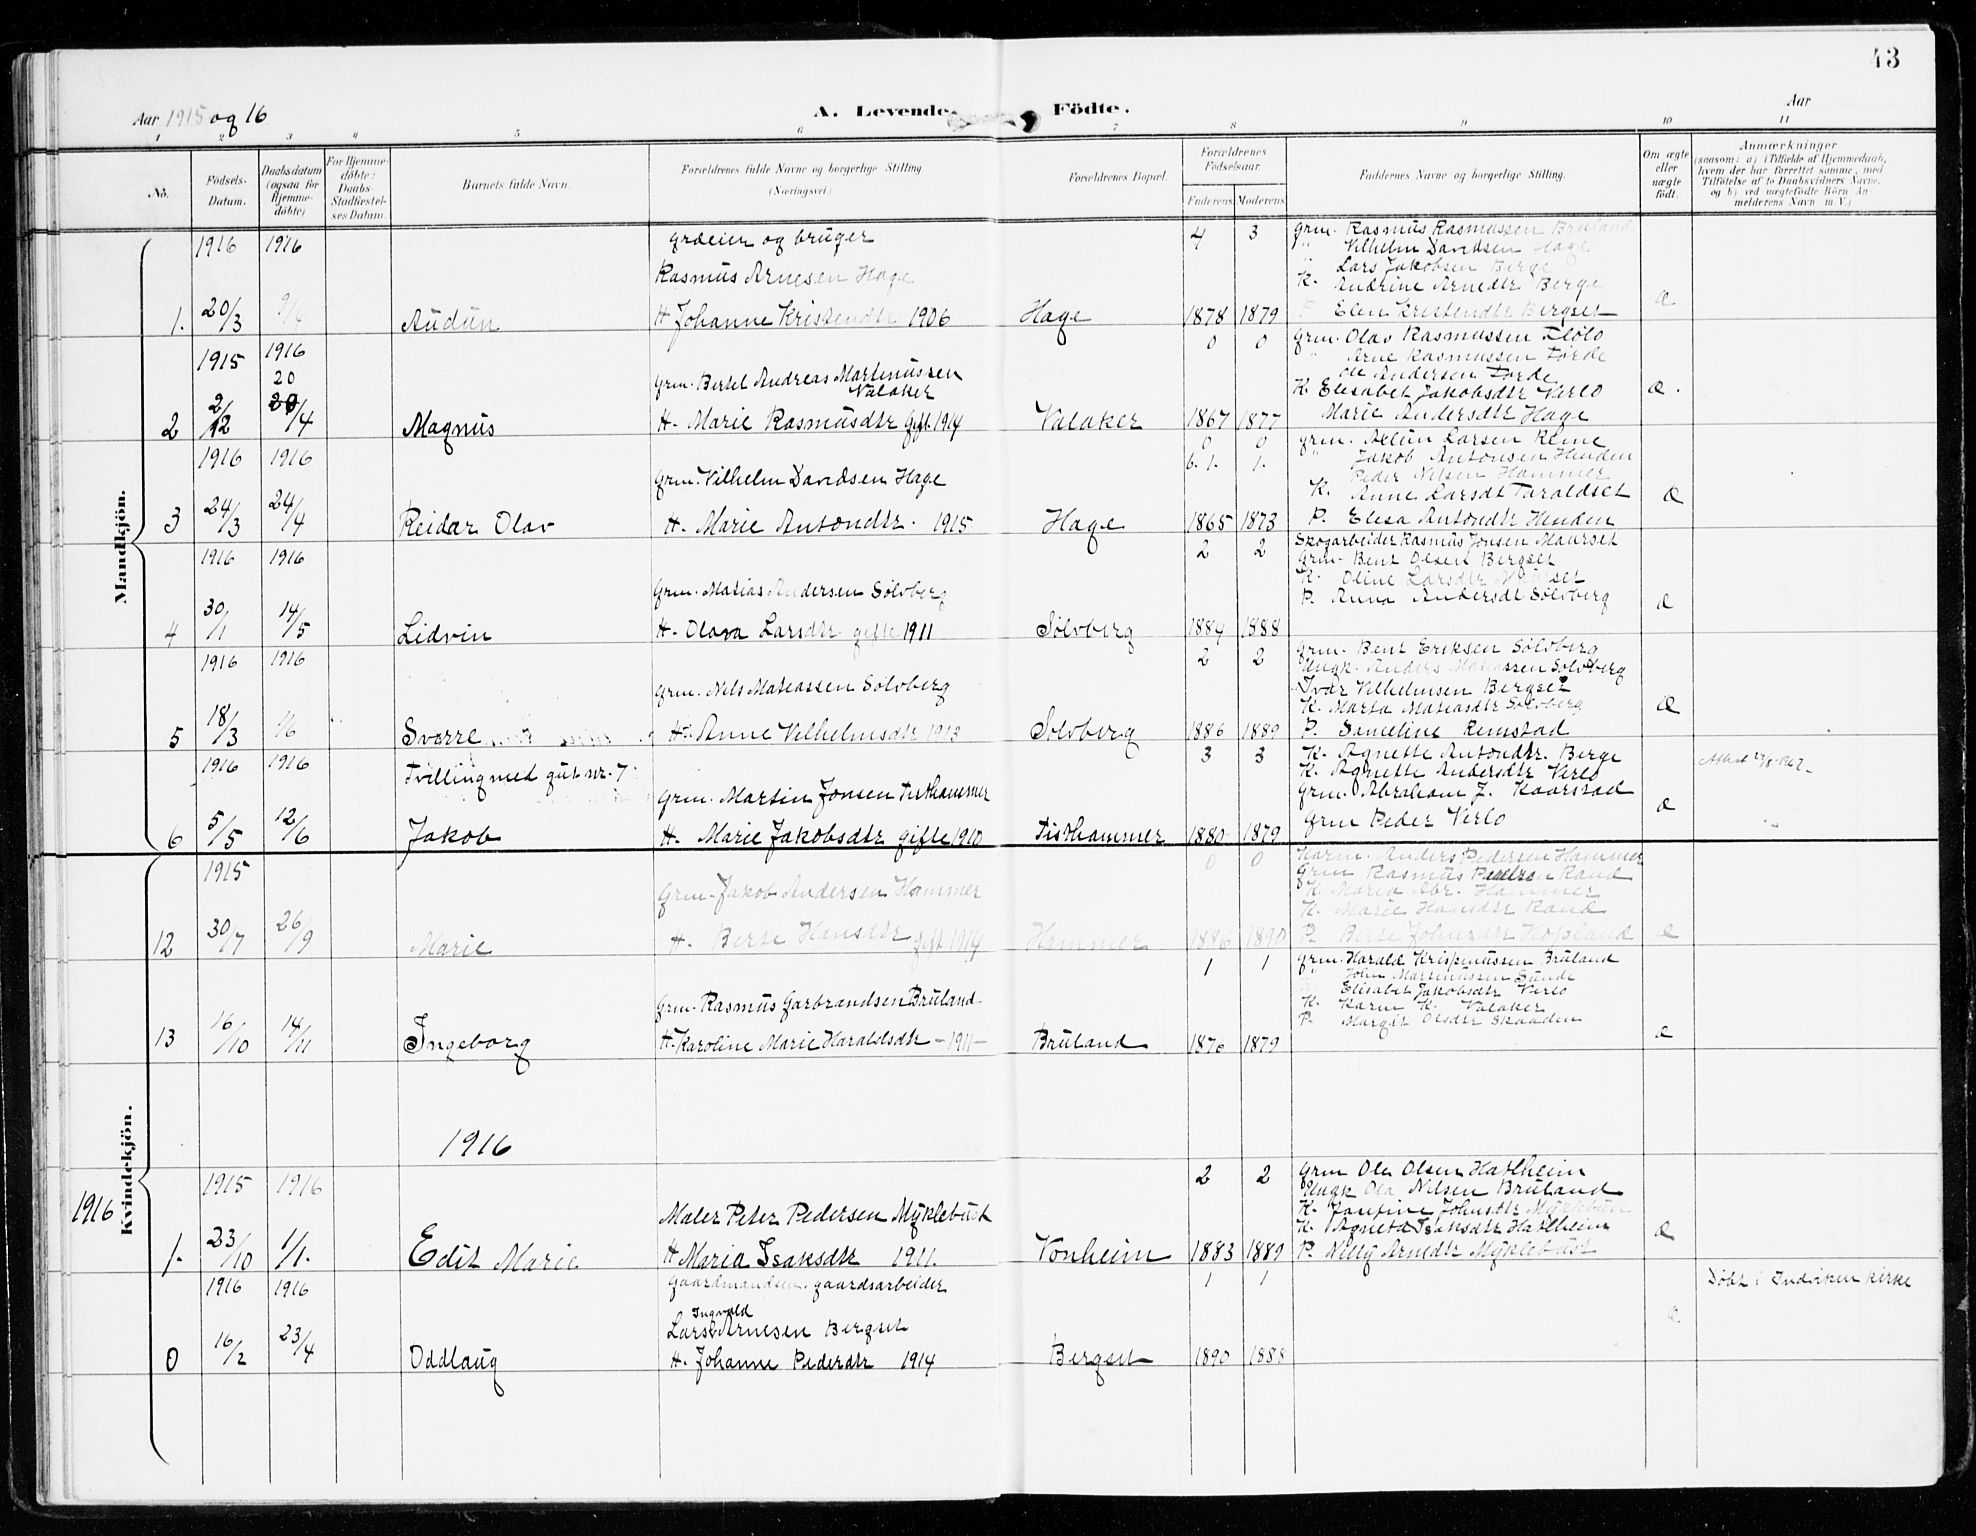 43
Aar 1915 og 16 A. Levende Födte. Aar
1 2 3 4 5 6 7 8 9 10 11
No. Födsels-Datum. Daabsdatum (ogsaa for Hjemmedöbte) For Hjemmedöbte: Daabs-Stadfestelses Datum. Barnets fulde Navn. Forældrenes fulde Navne og borgerlige Stilling (Næringsvei.) Forældrenes Bopæl. Forældrenes Födselsaar. Faderens. Moderens. Faddernes Navne og borgerlige Stilling. Om ægte eller uægte födt. Anmærkninger (saasom: a) i Tilfælde af Hjemmedaab, hvem der har forrettet samme, med Tilföielse af to Daabsvidners Navne, og b) ved uægtefödte Börn Anmelderens Navn m. V.)
Mandkjön.
1916 1916 grdeier og bruger 4 3 Grm. Rasmus Rasmussen Bruland
" Vilhelm Davidsen Hage
Rasmus Arnesen Hage " Lars Jakobsen Berge
K. Andrine Arnedtr Berge
1. 20/3 9/4 Audun H Johanne Kristendtr 1906 Hage 1878 1879 P. Elen Kristendtr Bergset Æ
1915 1916 0 0 Grm. Olav Rasmussen Flølo
20 " Arne Rasmussen Førde
Grm. Bertel Andreas Martinussen Ole Andersen Førde
Valaker K. Elisabet Jakobsdtr Verlo Æ.
2 2/12 20/4 Magnus H. Marie Rasmusdtr gift 1914 Valaker 1867 1877 Marie Andersdtr Hage
1916 1916 0 0 Grm. Larsen
6.1. 1. " Jakob Antonsen Henden
Grm. Vilhelm Davidsen Hage Peder Nilsen Hammer
K. Anne Larsdt Taraldset Æ
3 24/3 24/4 Reidar Olav H. Marie Antondtr. 1915 Hage 1865 1873 P. Elisa Antondtr Henden
1916 1916 2 2 Skogarbeider Rasmus Jonsen Maurset
Grm. Bent Olsen Bergset
K. Oline Larsdtr
Grm. Matias Andersen Sølvberg P. Anna Andersdt Sølvberg Æ
4 30/1 14/5 Lidvin H. Olava Larsdtr gifte 1911 Sølvberg 1884 1888
1916 1916 2 2 Grm. Bent Eriksen Sølvberg
Ungk. Anders Matiassen Sølvberg
Grm. Nils Matiassen Sølvberg Ivar Vilhelmsen Bergset
K. Marta Matiasdtr Sølvberg Æ
5 18/3 1/6 Sverre H. Anne Vilhelmsdtr 1913 Sølvberg 1886 1889 P. Sameline Remstad
1916 1916 Tvilling med gut nr. 7 3 3 K. Agnette Antondtr. Berge
K. Agnette Andersdtr Verlo
Grm. Martin Jonsen Tisthammer Grm. Abraham J. Kaarstad Æ
Grm Peder Verlo
6 5/5 12/6 Jakob H. Marie Jakobsdtr gifte 1910 Tisthammer 1880 1879
Kvindekjön.
1915 0 0 Anders Pedersen Hammer
Grm Rasmus Rand
Grm. Jakob Andersen Hammer K. Maria Abr. Hammer
K. Marie Hansdtr Rand
12 30/7 26/9 Marie H. Berte Hansdtr gift 1914 Hammer 1886 1890 P. Berte Johnsdtr Hopland Æ
1 1 Grm. Harald Krispinussen Bruland
" John Martinussen Sunde
Grm. Rasmus Garbrandsen Bruland Elisabet Jakobsdtr Verlo
K. Karen K. Valaker
P. Margit Olsdtr Skaaden
13 16/10 14/11 Ingeborg H. Karoline Marie Haraldsdtr - 1911 - Bruland 1876 1879 Æ
1916
1916
1915 1916 2 2 Grm Ola Olsen Hatlheim
Ungk Ola Nilsen Bruland
Maler Peter Pedersen Myklebust K. Josefine Johnsdtr Myklebust
K. Agneta Isaksdtr Hatlheim Æ
1. 23/10 1/1. Edit Marie H Maria Isaksdtr 1911. Vonheim 1883 1889 P. Nelly Arnedtr Myklebust
1916 1916 Gaardmandsøn, gaardsarbeider 1 1 Døbt i Indviken kirke
Ingvald
Lars Arnesen Bergset Æ.
0 16/2 23/4 Oddlaug H. Johanne Pedersdtr 1914 Bergset 1890 1888